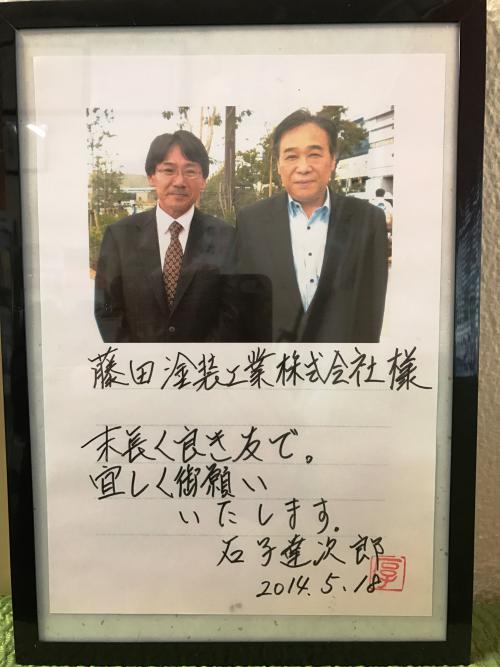 藤田塗装工業株式会社様
末長く良き友で。
宜しく御願い
いたします。
石子達次郎
2014.5.18